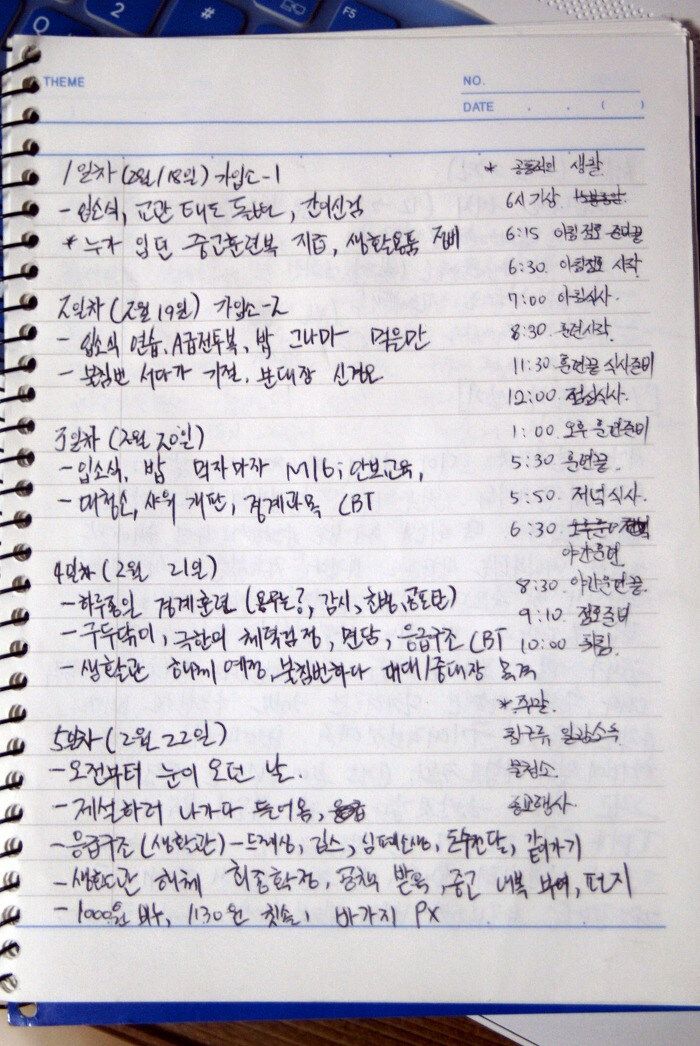 THEME
NO.
DATE . . ( )
1일차 (2월/18일) 가입소-1
- 입소식, 교관 태도 돌변, 간이신검
* 누가 입던 중고훈련복 지급, 생활용품 정비
2일차 (2월 19일) 가입소-2
- 입소식 연습, A급전투복, 밥 그나마 먹을만
- 불침번 서다가 기절. 분대장 신경요
3일차 (2월 20일)
- 입소식, 밥 먹자마자 M16, 안보교육,
- 대청소, 샤워 개판, 경계과목 CBT
4일차 (2월 21일)
- 하루종일 경계훈련 (용무는?, 감시, 한번, 공포탄)
- 구두닦이, 극한의 체력검정, 면담, 응급구조 CBT
- 생활관 해체 예정, 불침번하다 대대/중대장 목격
5일차 (2월 22일)
- 오전부터 눈이 오던 날.
- 제설하러 나가다 들어옴,
- 응급구조 (생활관) - 드레싱, 깁스, 심폐소생, 환자전달, 같이가기
- 생활관 해체 최종확정, 공책 받음, 중고 내복 부여, 편지
- 1000원 1130원 칫솔, 바가지 PX
* 공통적인 생활
6시 기상
6:15 아침점호 준비끝
6:30. 아침점호 시작
7:00 아침식사.
8:30. 훈련시작
11:30. 훈련끝 식사준비
12:00. 점심식사.
1:00. 오후 훈련준비
5:30 훈련끝.
5:50. 저녁식사.
6:30
야간훈련
8:30 야간훈련끝.
9:10 점호준비
10:00 취침.
* 주말.
침구류 일광소독
물청소.
종교행사.